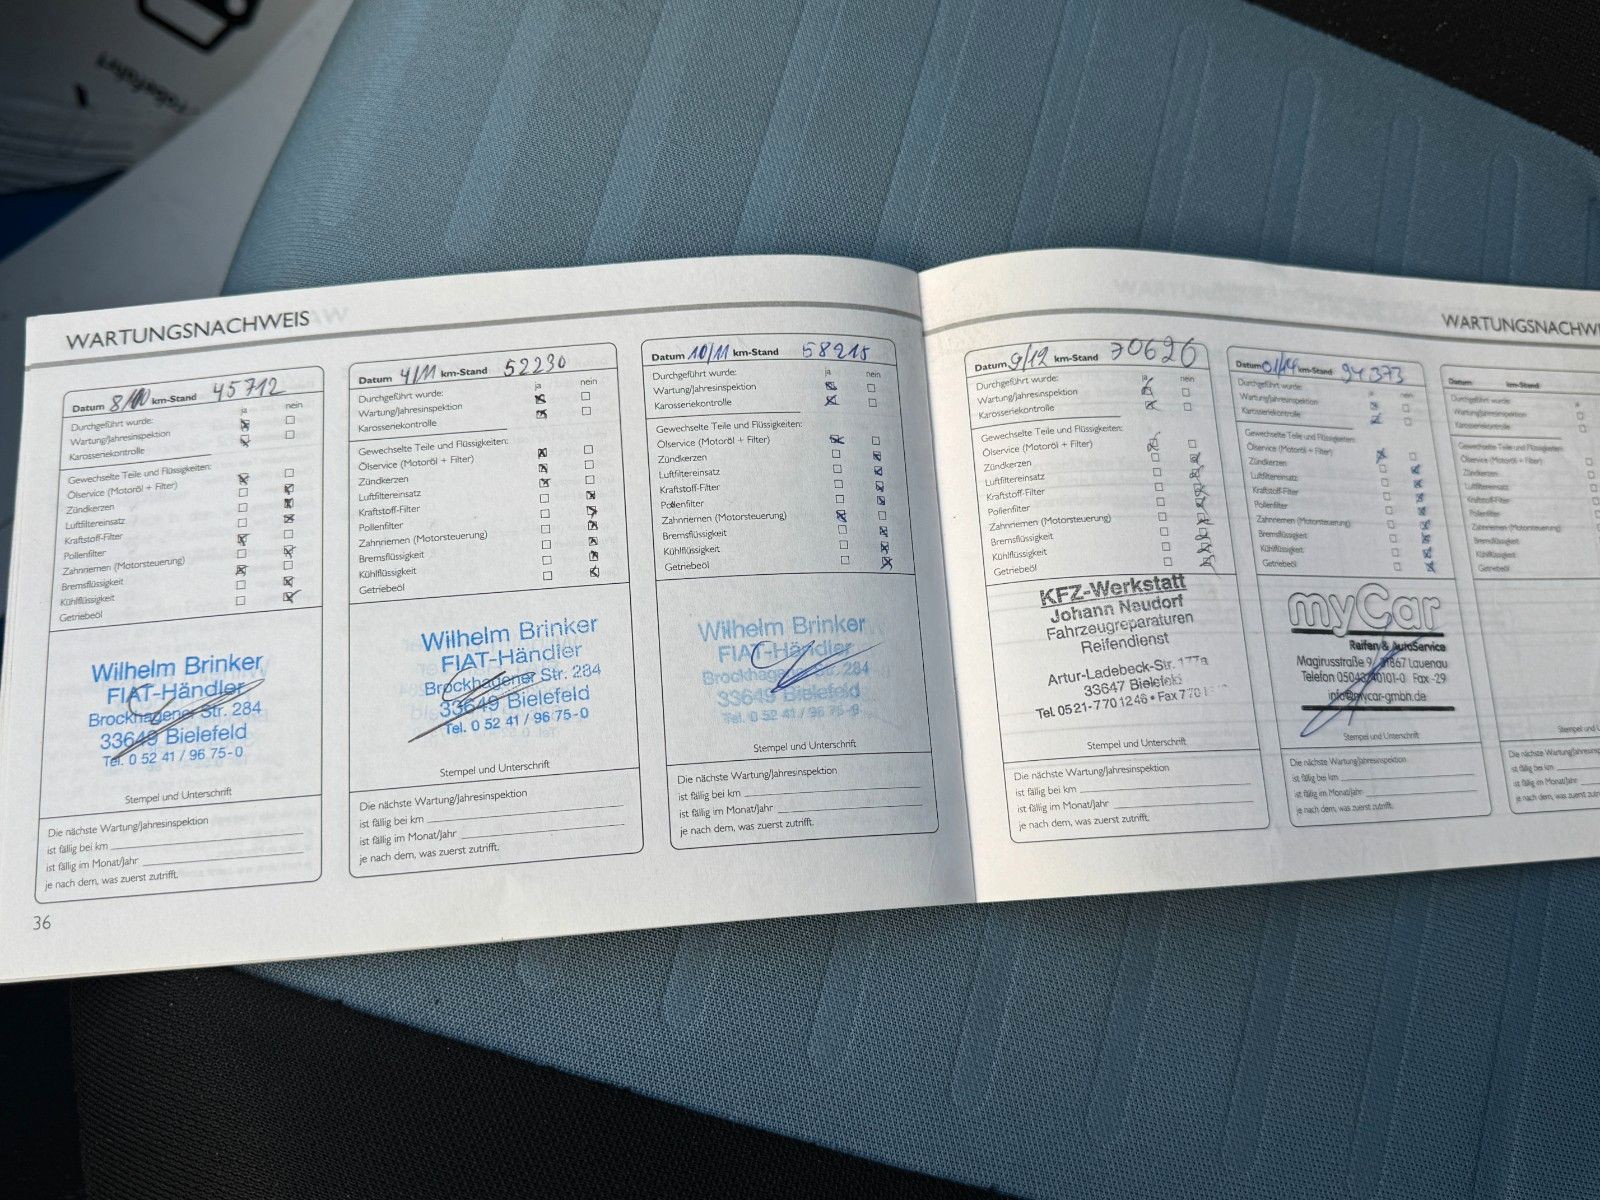 Probefahrt
WARTUNGSNACHWEIS
Datum 8/10 km-Stand 45712
ja nein
Durchgeführt wurde:
Wartung/Jahresinspektion
Karosseriekontrolle
Gewechselte Teile und Flüssigkeiten:
Ölservice (Motoröl + Filter)
Zündkerzen
Luftfiltereinsatz
Kraftstoff-Filter
Pollenfilter
Zahnriemen (Motorsteuerung)
Bremsflüssigkeit
Kühlflüssigkeit
Getriebeöl
Wilhelm Brinker
FIAT-Händler
Brockhagener Str. 284
33649 Bielefeld
Tel. 0 52 41 / 96 75-0
Stempel und Unterschrift
Die nächste Wartung/Jahresinspektion
ist fällig bei km
ist fällig im Monat/Jahr
je nach dem, was zuerst zutrifft.
36
Datum 4/11 km-Stand 52230
ja nein
Durchgeführt wurde:
Wartung/Jahresinspektion
Karosseriekontrolle
Gewechselte Teile und Flüssigkeiten:
Ölservice (Motoröl + Filter)
Zündkerzen
Luftfiltereinsatz
Kraftstoff-Filter
Pollenfilter
Zahnriemen (Motorsteuerung)
Bremsflüssigkeit
Kühlflüssigkeit
Getriebeöl
Wilhelm Brinker
FIAT-Händler
Brockhagener Str. 284
33649 Bielefeld
Tel. 0 52 41 / 96 75-0
Stempel und Unterschrift
Die nächste Wartung/Jahresinspektion
ist fällig bei km
ist fällig im Monat/Jahr
je nach dem, was zuerst zutrifft.
Datum 10/11 km-Stand 58215
ja nein
Durchgeführt wurde:
Wartung/Jahresinspektion
Karosseriekontrolle
Gewechselte Teile und Flüssigkeiten:
Ölservice (Motoröl + Filter)
Zündkerzen
Luftfiltereinsatz
Kraftstoff-Filter
Pollenfilter
Zahnriemen (Motorsteuerung)
Bremsflüssigkeit
Kühlflüssigkeit
Getriebeöl
Wilhelm Brinker
FIAT-Händler
Brockhagener Str. 284
33649 Bielefeld
Tel. 0 52 41 / 96 75-0
Stempel und Unterschrift
Die nächste Wartung/Jahresinspektion
ist fällig bei km
ist fällig im Monat/Jahr
je nach dem, was zuerst zutrifft.
WARTUNGSNACHWE
Datum 9/12 km-Stand 70626
ja nein
Durchgeführt wurde:
Wartung/Jahresinspektion
Karosseriekontrolle
Gewechselte Teile und Flüssigkeiten:
Ölservice (Motoröl + Filter)
Zündkerzen
Luftfiltereinsatz
Kraftstoff-Filter
Pollenfilter
Zahnriemen (Motorsteuerung)
Bremsflüssigkeit
Kühlflüssigkeit
Getriebeöl
KFZ-Werkstatt
Johann Neudorf
Fahrzeugreparaturen
Reifendienst
Artur-Ladebeck-Str. 177a
33647 Bielefeld
Tel. 0521-7701246 • Fax 770
Stempel und Unterschrift
Die nächste Wartung/Jahresinspektion
ist fällig bei km
ist fällig im Monat/Jahr
je nach dem, was zuerst zutrifft.
Datum 01/14 km-Stand 94373
ja nein
Durchgeführt wurde:
Wartung/Jahresinspektion
Karosseriekontrolle
Gewechselte Teile und Flüssigkeiten:
Ölservice (Motoröl + Filter)
Zündkerzen
Luftfiltereinsatz
Kraftstoff-Filter
Pollenfilter
Zahnriemen (Motorsteuerung)
Bremsflüssigkeit
Kühlflüssigkeit
Getriebeöl
myCar
Reifen & AutoService
Magirusstraße 9 31867 Lauenau
Telefon 05043 40101-0 Fax -29
info@mycar-gmbh.de
Stempel und Unterschrift
Die nächste Wartung/Jahresinspektion
ist fällig bei km
ist fällig im Monat/Jahr
je nach dem, was zuerst zutrifft.
Datum km-Stand
Durchgeführt wurde:
Wartung/Jahresinspektion
Karosseriekontrolle
Gewechselte Teile und Flüssigkeiten:
Ölservice (Motoröl + Filter)
Zündkerzen
Luftfiltereinsatz
Kraftstoff-Filter
Pollenfilter
Zahnriemen (Motorsteuerung)
Bremsflüssigkeit
Kühlflüssigkeit
Getriebeöl
Stempel und U
Die nächste Wartung/Jahresinsp
ist fällig bei km
ist fällig im Monat/Jahr
je nach dem, was zuerst zutr